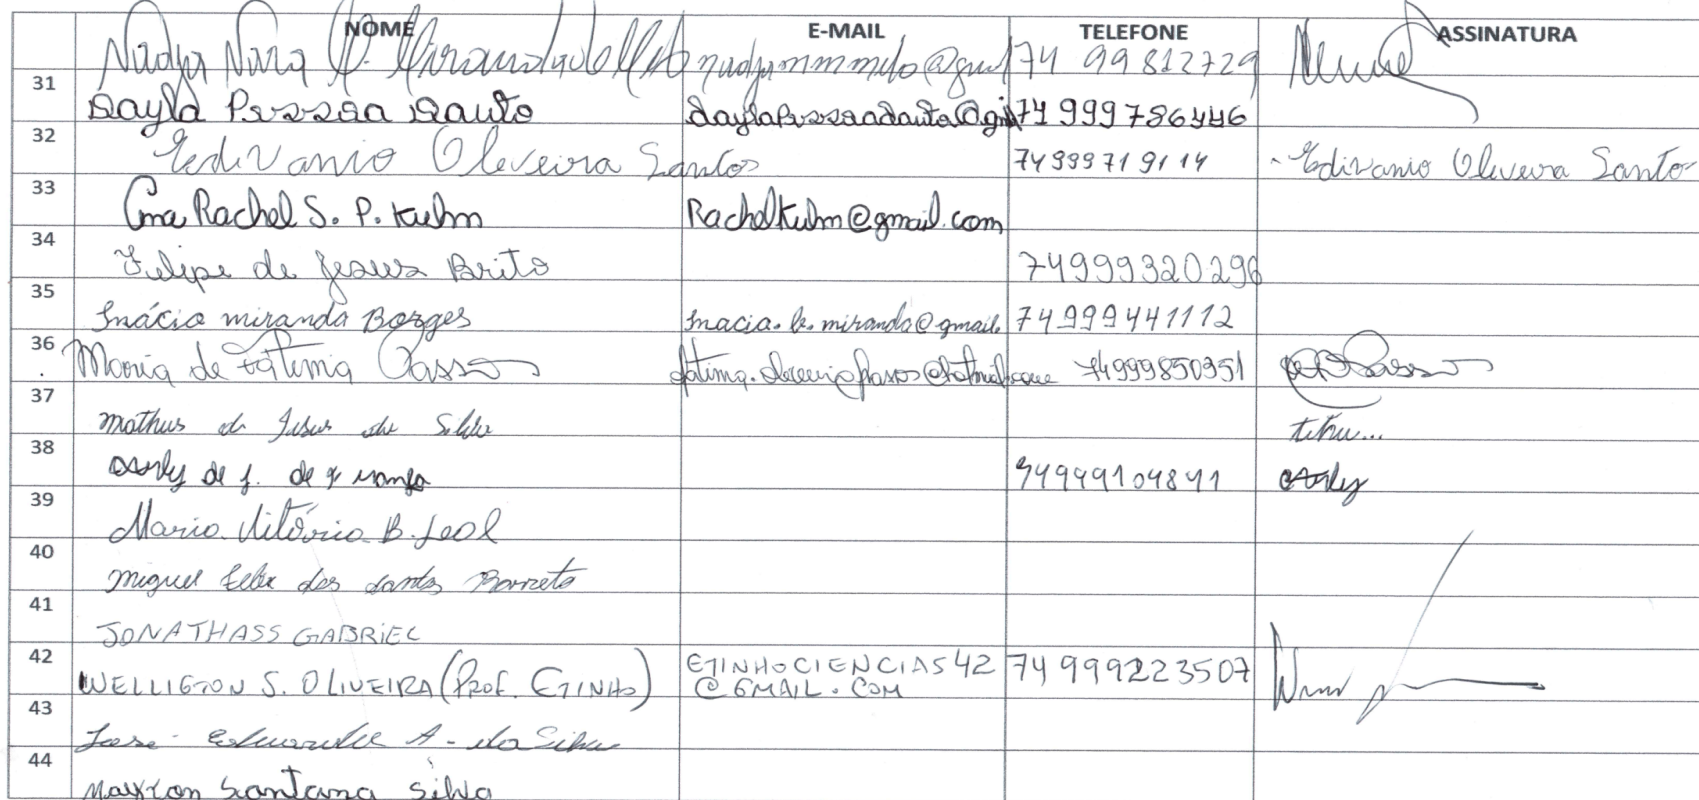 NOME E-MAIL TELEFONE ASSINATURA
Nadja Nara P. Miranda de Mello nadjanmmelo@gmail 74 99812729
31
Dayla Pessoa Dauto daylapessoadauto@gm 74 999786446
32
Edivanio Oliveira Santos 74999719114 Edivanio Oliveira Santo
33
Ana Rachel S. P. Kulm Rachelkulm@gmail.com
34
Felipe de Jesus Brito 74999320296
35
Inácia miranda Borges Inacia.b.miranda@gmail. 74999441112
36
Maria de Fátima Passos 74999850351
37
Mathus de Jesus da Silva
38
de j. de 74999104841
39
Maria Vitória B. Leal
40
Miguel Felix dos Santos Barreto
41
JONATHASS GABRIEL
42
WELLIGTON S. OLIVEIRA (PROF. EGINHO) EGINHOCIENCIAS42 74 999223507
@GMAIL.COM
43
José Eduardo A. da Silva
44
Maykon Santana Silva